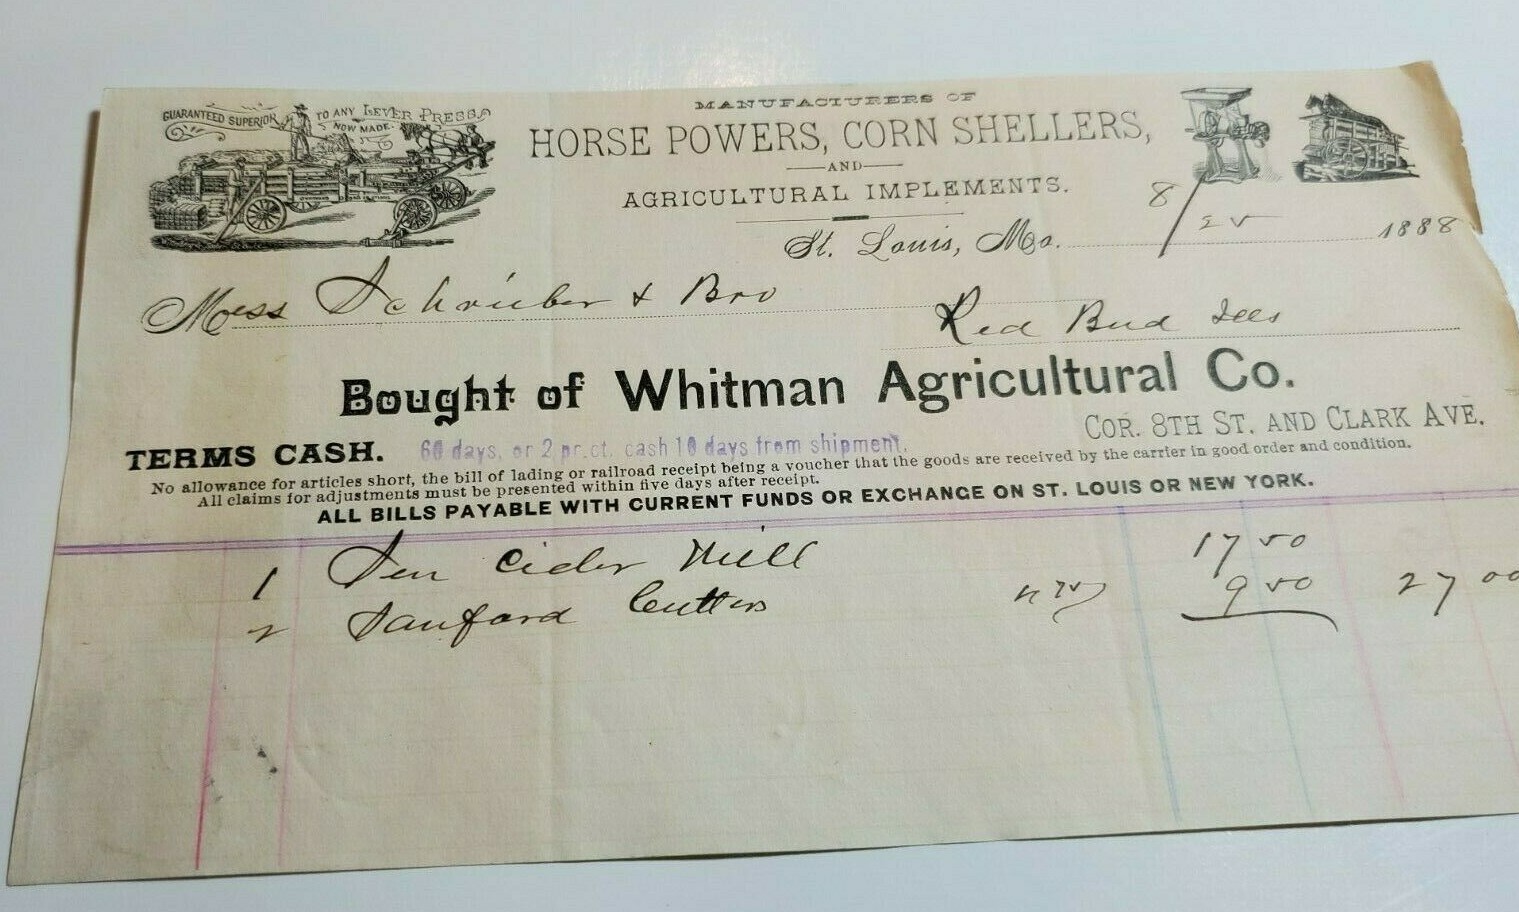 GUARANTEED SUPERIOR TO ANY LEVER PRESS
NOW MADE.
MANUFACTURERS OF
HORSE POWERS, CORN SHELLERS,
AND
AGRICULTURAL IMPLEMENTS.
St. Louis, Mo. 8/25 1888
Mess Schrieber & Bro
Red Bud Ills
Bought of Whitman Agricultural Co.
COR. 8TH ST. AND CLARK AVE.
TERMS CASH. 60 days, or 2 pr. ct. cash 10 days from shipment.
No allowance for articles short, the bill of lading or railroad receipt being a voucher that the goods are received by the carrier in good order and condition.
All claims for adjustments must be presented within five days after receipt.
ALL BILLS PAYABLE WITH CURRENT FUNDS OR EXCHANGE ON ST. LOUIS OR NEW YORK.
1 Sen Cider Mill 17 50
2 Sanford Cutters 9 50 27 00